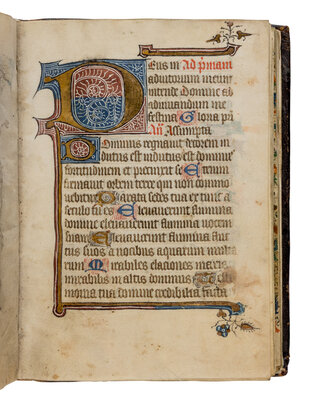 Deus in Ad p̄mam
adiutorium meum
intende Domine ad
adiuuandum me
festina Gloria pri
An̄ Assumpta
Dominus regnauit decorem in
dutus est indutus est domin⁹
fortitudinem et precinxit se Etenim
firmauit orbem terre qui non commo
uebitur Parata sedes tua ex tunc a
seculo tu es Eleuauerunt flumina
domine eleuauerunt flumina uocem
suam Eleuauerunt flumina fluc
tus suos a uocibus aquarum multa
rum Mirabiles elaciones maris
mirabilis in altis dominus Testi
monia tua domine credibilia facta